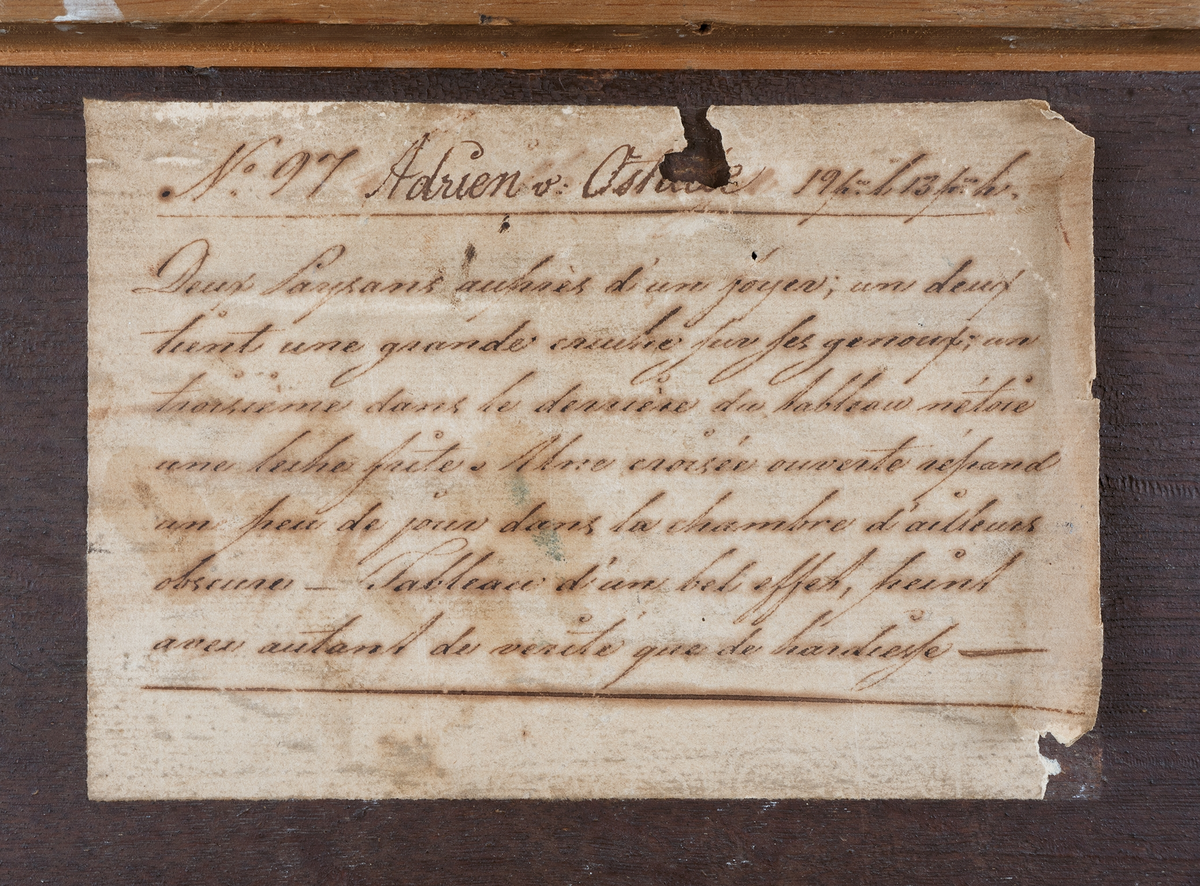 No. 97 Adrien v: Ostade 19 pce l 13 pce h.
Deux Paysans auprès d'un foyer; un deux
tient une grande cruche sur ses genoux; un
troisieme dans le derrière du tableau nétoie
une leche frite. Une croisée ouverte répand
un peu de jour dans la chambre d'ailleurs
obscure – Tableau d'un bel effet, peint
avec autant de verité que de hardiesse —